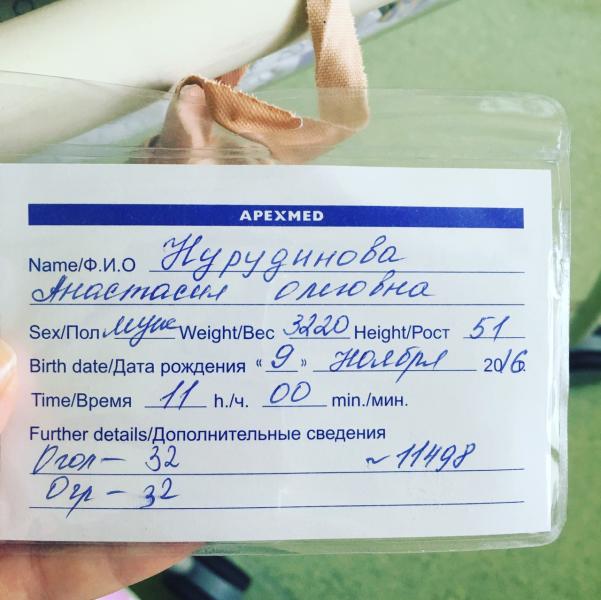 APEXMED
Name/Ф.И.О Нурудинова
Анастасия Олеговна
Sex/Пол муж Weight/Вес 3220 Height/Рост 51
Birth date/Дата рождения «9» ноября 2016
Time/Время 11 h./ч. 00 min./мин.
Further details/Дополнительные сведения
Огол – 32 ~ 11498
Огр – 32